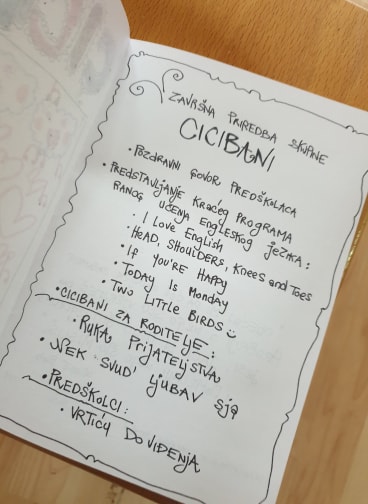 ZAVRŠNA PRIREDBA SKUPINE
CICIBANI
• POZDRAVNI GOVOR PREDŠKOLACA
• PREDSTAVLJANJE KRAĆEG PROGRAMA
RANOG UČENJA ENGLESKOG JEZIKA:
• I LOVE ENGLISH
• HEAD, SHOULDERS, KNEES and TOES
• IF YOU'RE HAPPY
• TODAY IS MONDAY
• TWO LITTLE BIRDS ☺
• CICIBANI ZA RODITELJE:
• RUKA PRIJATELJSTVA
• NEK SVUD' LJUBAV SJA
• PREDŠKOLCI:
• VRTIĆU DOVIĐENJA